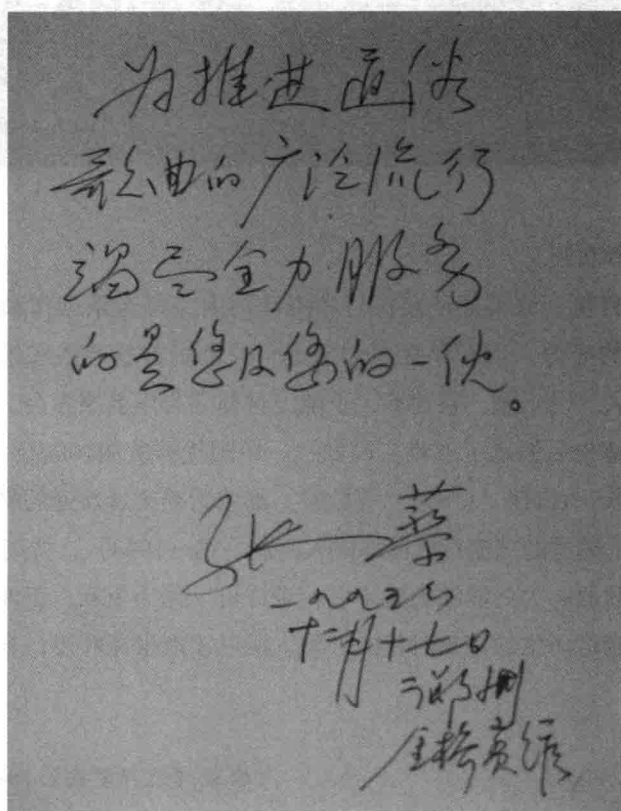 为推进通俗
歌曲的广泛流行
竭尽全力服务
的是您及您的一伙。
张一
一九九五年
十二月十七日
郑州
金桥宾馆